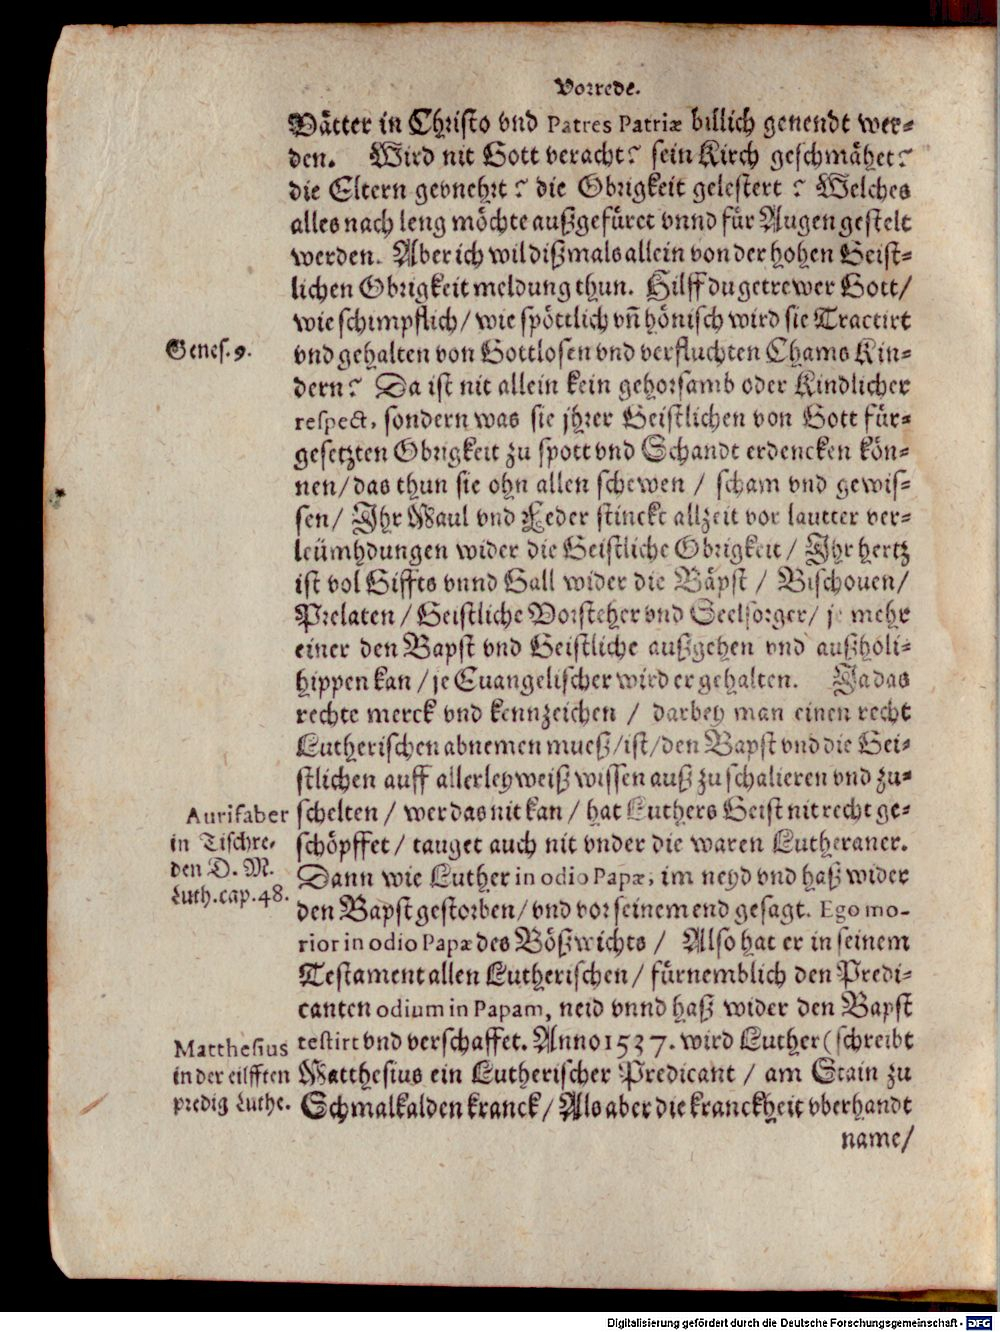 Vorrede.
Vätter in Christo vnd Patres Patriæ billich genendt wer-
den. Wird nit Gott veracht? sein Kirch geschmähet?
die Eltern gevnehrt? die Obrigkeit gelestert? Welches
alles nach leng möchte außgefüret vnnd für Augen gestelt
werden. Aber ich wil dißmals allein von der hohen Geist-
lichen Obrigkeit meldung thun. Hilff du getrewer Gott/
wie schimpflich/ wie spöttlich vñ hönisch wird sie Tractirt
Genes. 9.
vnd gehalten von Gottlosen vnd verfluchten Chams Kin-
dern? Da ist nit allein kein gehorsamb oder Kindlicher
respect, sondern was sie jhrer Geistlichen von Gott für-
gesetzten Obrigkeit zu spott vnd Schandt erdencken kön-
nen/ das thun sie ohn allen schewen / scham vnd gewis-
sen/ Ihr Maul vnd Feder stinckt allzeit vor lautter ver-
leümhdungen wider die Geistliche Obrigkeit/ Ihr hertz
ist vol Giffts vnnd Gall wider die Bäpst / Bischouen/
Prelaten/ Geistliche Vorsteher vnd Seelsorger/ je mehr
einer den Bapst vnd Geistliche außgehen vnd außholi-
hippen kan/ je Euangelischer wird er gehalten. Ja das
rechte merck vnd kennzeichen / darbey man einen recht
Lutherischen abnemen mueß/ ist/ den Bapst vnd die Gei-
stlichen auff allerley weiß wissen auß zu schalieren vnd zu-
schelten / wer das nit kan / hat Luthers Geist nit recht ge-
schöpffet / tauget auch nit vnder die waren Lutheraner.
Aurifaber
in Tischre-
den D. M.
Luth. cap. 48.
Dann wie Luther in odio Papæ, im neyd vnd haß wider
den Bapst gestorben/ vnd vor seinem end gesagt. Ego mo-
rior in odio Papæ des Bößwichts / Also hat er in seinem
Testament allen Lutherischen/ fürnemblich den Predi-
canten odium in Papam, neid vnnd haß wider den Bapst
testirt vnd verschaffet. Anno 1537. wird Luther (schreibt
Matthesius
in der eilfften
predig Luthe.
Matthesius ein Lutherischer Predicant / am Stain zu
Schmalkalden kranck/ Als aber die kranckheit vberhandt
name/
Digitalisierung gefördert durch die Deutsche Forschungsgemeinschaft - DFG